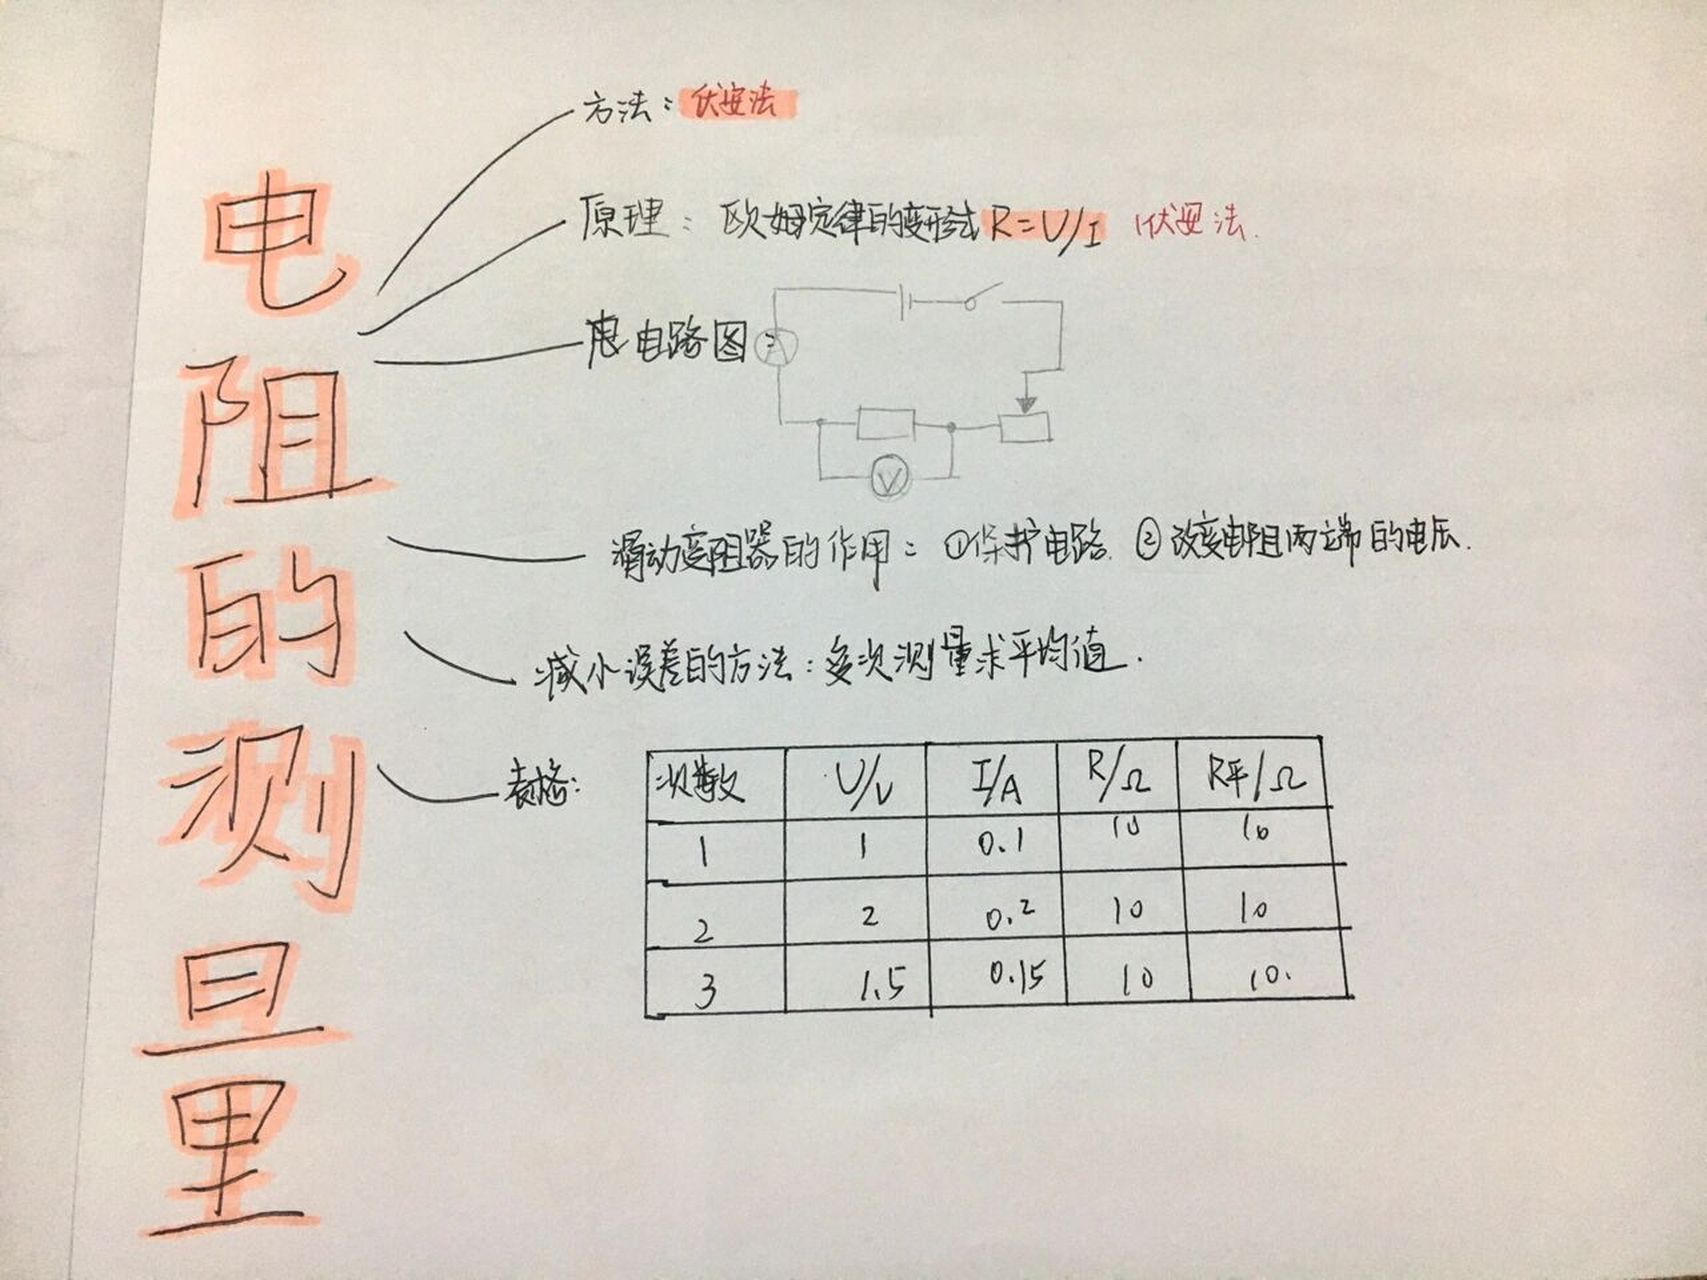 电阻的测量
方法：伏安法
原理：欧姆定律的变形式R=U/I 伏安法.
电路图：
A
V
滑动变阻器的作用：①保护电路. ②改变电阻两端的电压.
减小误差的方法：多次测量求平均值.
表格：
次数 U/V I/A R/Ω R平/Ω
1 1 0.1 10 10
2 2 0.2 10 10
3 1.5 0.15 10 10.